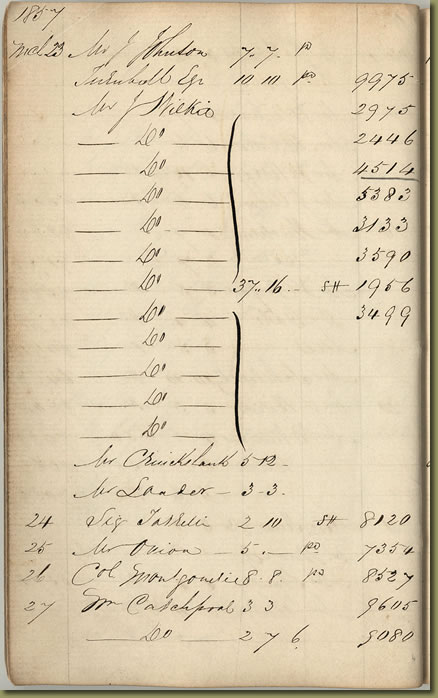 1857
Mch 23 Mr J Johnson 7..7. pd
Turnbull Esqr 10 10 pd 9975
Mr J Wilkie 2975
Do 2446
Do 4514
Do 5383
Do 3133
Do 3590
Do 37..16 - SH 1956
Do 3499
Do
Do
Do
Do
Mr Cruickshank 5 12 -
Mr Lauder - 3 - 3.
24 Sig 2 10 SH 8120
25 Mr Onion - 5 . - pd 7354
26 Col Montgomerie 8. 8. pd 8527
27 Mr Catchpool 3 3 9605
Do 2 7 6 9080